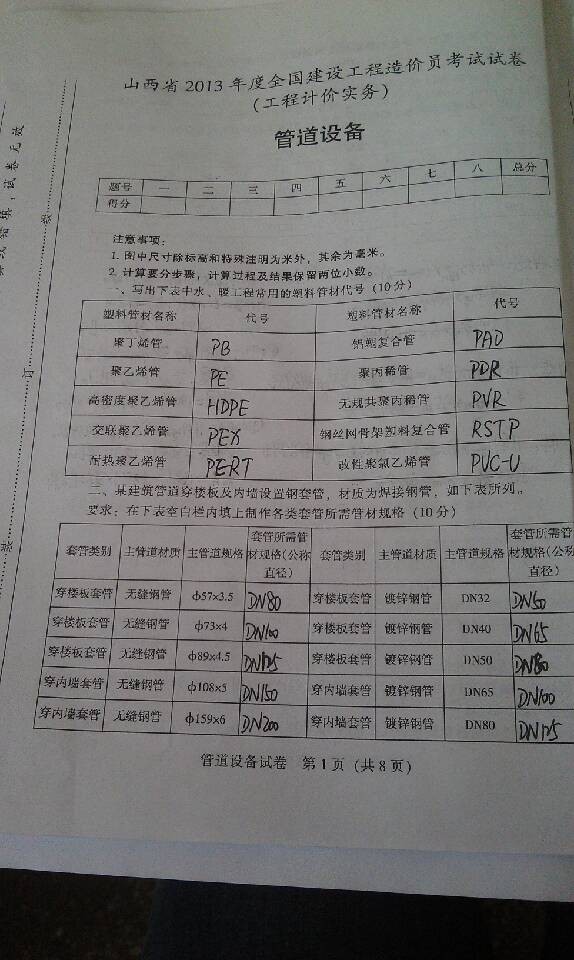 山西省2013年度全国建设工程造价员考试试卷
（工程计价实务）
管道设备
题号 一 二 三 四 五 六 七 八 总分
得分
注意事项：
1. 图中尺寸除标高和特殊注明为米外，其余为毫米。
2. 计算要分步骤，计算过程及结果保留两位小数。
一、写出下表中水、暖工程常用的塑料管材代号（10分）
塑料管材名称 代号 塑料管材名称 代号
聚丁烯管 PB 铝塑复合管 PAD
聚乙烯管 PE 聚丙稀管 PDR
高密度聚乙烯管 HDPE 无规共聚丙稀管 PVR
交联聚乙烯管 PEX 钢丝网骨架塑料复合管 RSTP
耐热聚乙烯管 PERT 改性聚氯乙烯管 PVC-U
二、某建筑管道穿楼板及内墙设置钢套管，材质为焊接钢管，如下表所列。
要求：在下表空白栏内填上制作各类套管所需管材规格（10分）
套管类别 主管道材质 主管道规格 套管所需管材规格(公称直径) 套管类别 主管道材质 主管道规格 套管所需管材规格(公称直径)
穿楼板套管 无缝钢管 ф57×3.5 DN80 穿楼板套管 镀锌钢管 DN32 DN50
穿楼板套管 无缝钢管 ф73×4 DN100 穿楼板套管 镀锌钢管 DN40 DN65
穿楼板套管 无缝钢管 ф89×4.5 DN125 穿楼板套管 镀锌钢管 DN50 DN80
穿内墙套管 无缝钢管 ф108×5 DN150 穿内墙套管 镀锌钢管 DN65 DN100
穿内墙套管 无缝钢管 ф159×6 DN200 穿内墙套管 镀锌钢管 DN80 DN125
管道设备试卷 第1页（共8页）